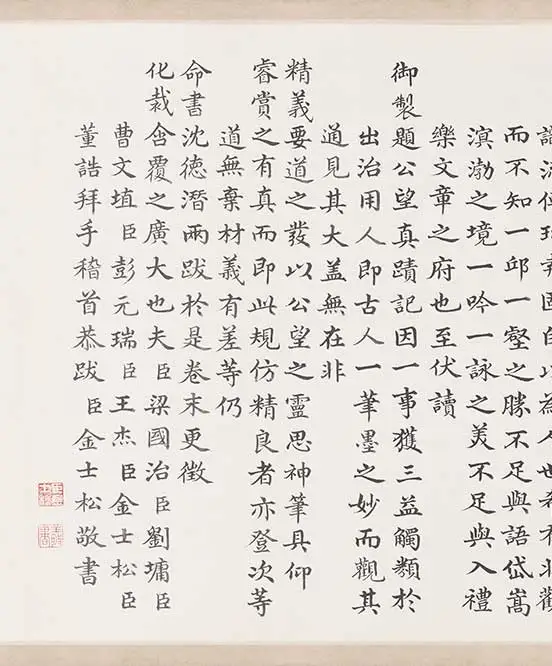 而不知一邱一壑之勝不足與語岱嵩
溟渤之境一吟一詠之美不足與入禮
樂文章之府也至伏讀
御製題公望真蹟記因一事獲三益觸類於
出治用人即古人一筆墨之妙而觀其
道見其大盖無在非
精義要道之發以公望之靈思神筆具仰
睿賞之有真而即此規仿精良者亦登次等
道無棄材義有差等仍
命書沈德潛兩跋於是卷末更徵
化裁含覆之廣大也夫臣梁國治臣劉墉臣
曹文埴臣彭元瑞臣王杰臣金士松臣
董誥拜手稽首恭跋 臣金士松敬書